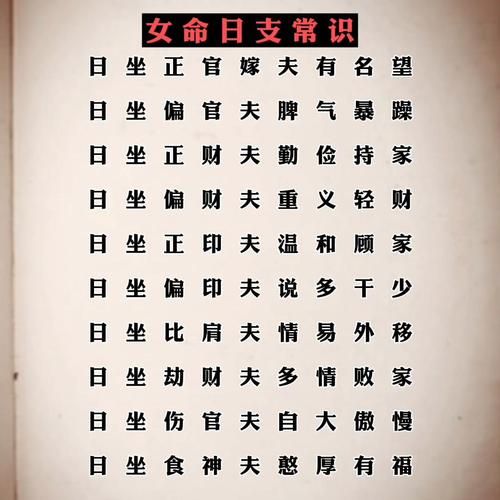 女命日支常识
日坐正官嫁夫有名望
日坐偏官夫脾气暴躁
日坐正财夫勤俭持家
日坐偏财夫重义轻财
日坐正印夫温和顾家
日坐偏印夫说多干少
日坐比肩夫情易外移
日坐劫财夫多情败家
日坐伤官夫自大傲慢
日坐食神夫憨厚有福